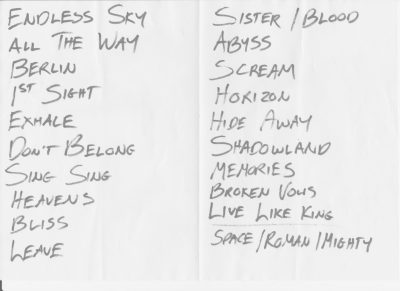 ENDLESS SKY
ALL THE WAY
BERLIN
1ST SIGHT
EXHALE
DON'T BELONG
SING SING
HEAVENS
BLISS
LEAVE
SISTER / BLOOD
ABYSS
SCREAM
HORIZON
HIDE AWAY
SHADOWLAND
MEMORIES
BROKEN VOWS
LIVE LIKE KING
SPACE/ROMAN/MIGHTY